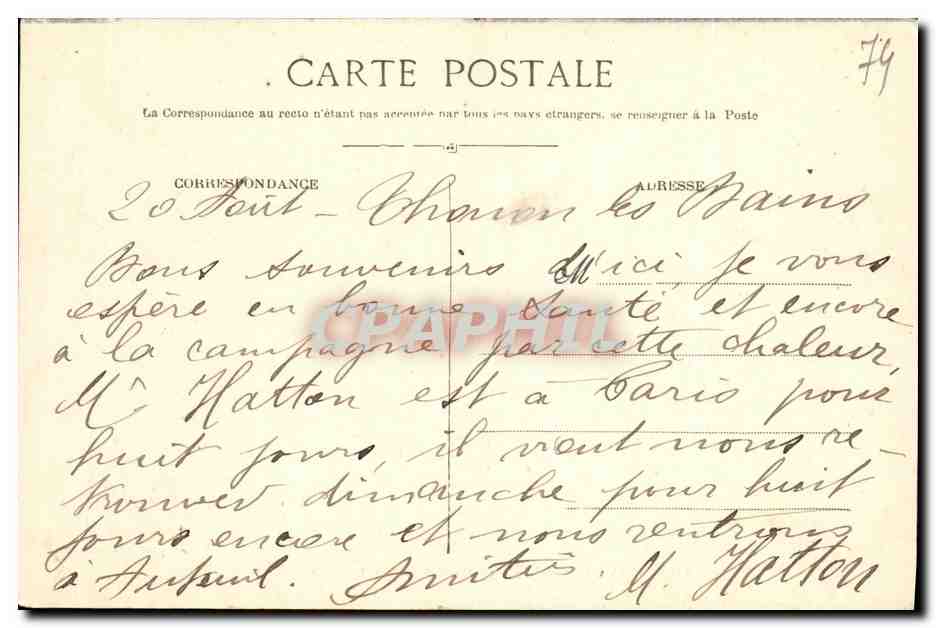 74
CARTE POSTALE
La Correspondance au recto n'étant pas acceptée par tous les pays etrangers, se renseigner à la Poste
CORRESPONDANCE
ADRESSE
20 Août - Thonon les Bains
Bons souvenirs d'ici, je vous
espère en bonne santé et encore
à la campagne par cette chaleur,
Mr Hatton est à Paris pour
huit jours, il vient nous re-
trouver dimanche pour huit
jours encore et nous rentrons
à Auteuil. Amitiés. M. Hatton
CPAPHIL